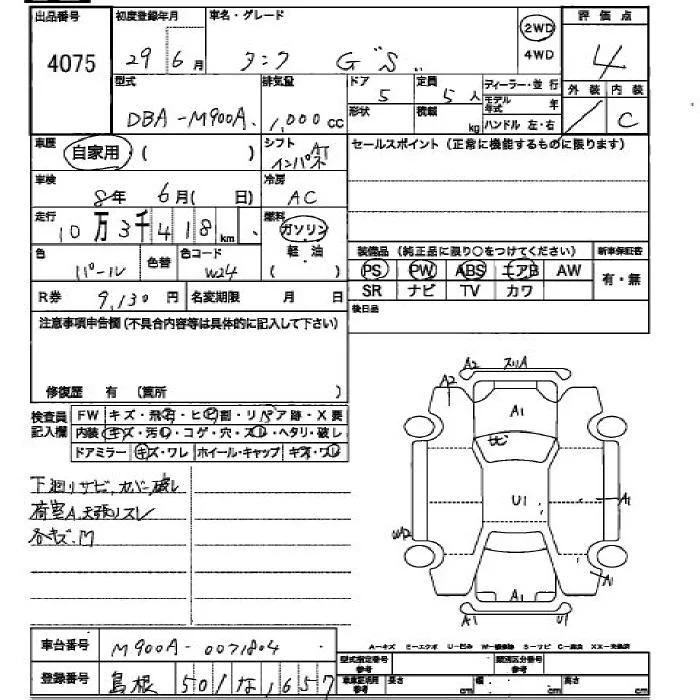 出品番号 初度登録年月 車名・グレード 2WD 評価点
4075 29年 6月 タンク G"S" 4WD 4
型式 排気量 ドア 定員 ディーラー・並行 外装 内装
DBA-M900A. 1,000cc 5 5人 モデル年式 年 C
形状 積載 kg ハンドル 左・右
車歴 自家用 ( ) シフト AT インパネ セールスポイント (正常に機能するものに限ります)
車検 8年 6月( 日) 冷房 AC
走行 10万3千418km 燃料 ガソリン
軽油
色 パール 色替 色コード W24
装備品 (純正品に限り○をつけてください) 新車保証書
PS PW ABS エアB AW 有・無
SR ナビ TV カワ
R券 9,130円 名変期限 月 日 後日品
注意事項申告欄 (不具合内容等は具体的に記入して下さい)
修復歴 有 (箇所 )
検査員記入欄 FW キズ・飛石・ヒビ割・リペア跡・X要
内装 キズ・汚れ・コゲ・穴・スレ・ヘタリ・破レ
ドアミラー キズ・ワレ ホイール・キャップ キズ・ワレ
下廻リサビ、カバー破レ
荷室A、天張リスレ
各キズ、M
A2 スリA
A2
A1
U1
A1
W2
A1
A1
A1 U1
A-キズ E-エクボ U-凹み
車台番号 M900A-0071804
登録番号 島根 501 な 1657
型式指定番号 参考 類別区分番号 参考
車庫証明用 参考 長さ cm 幅 cm 高さ cm